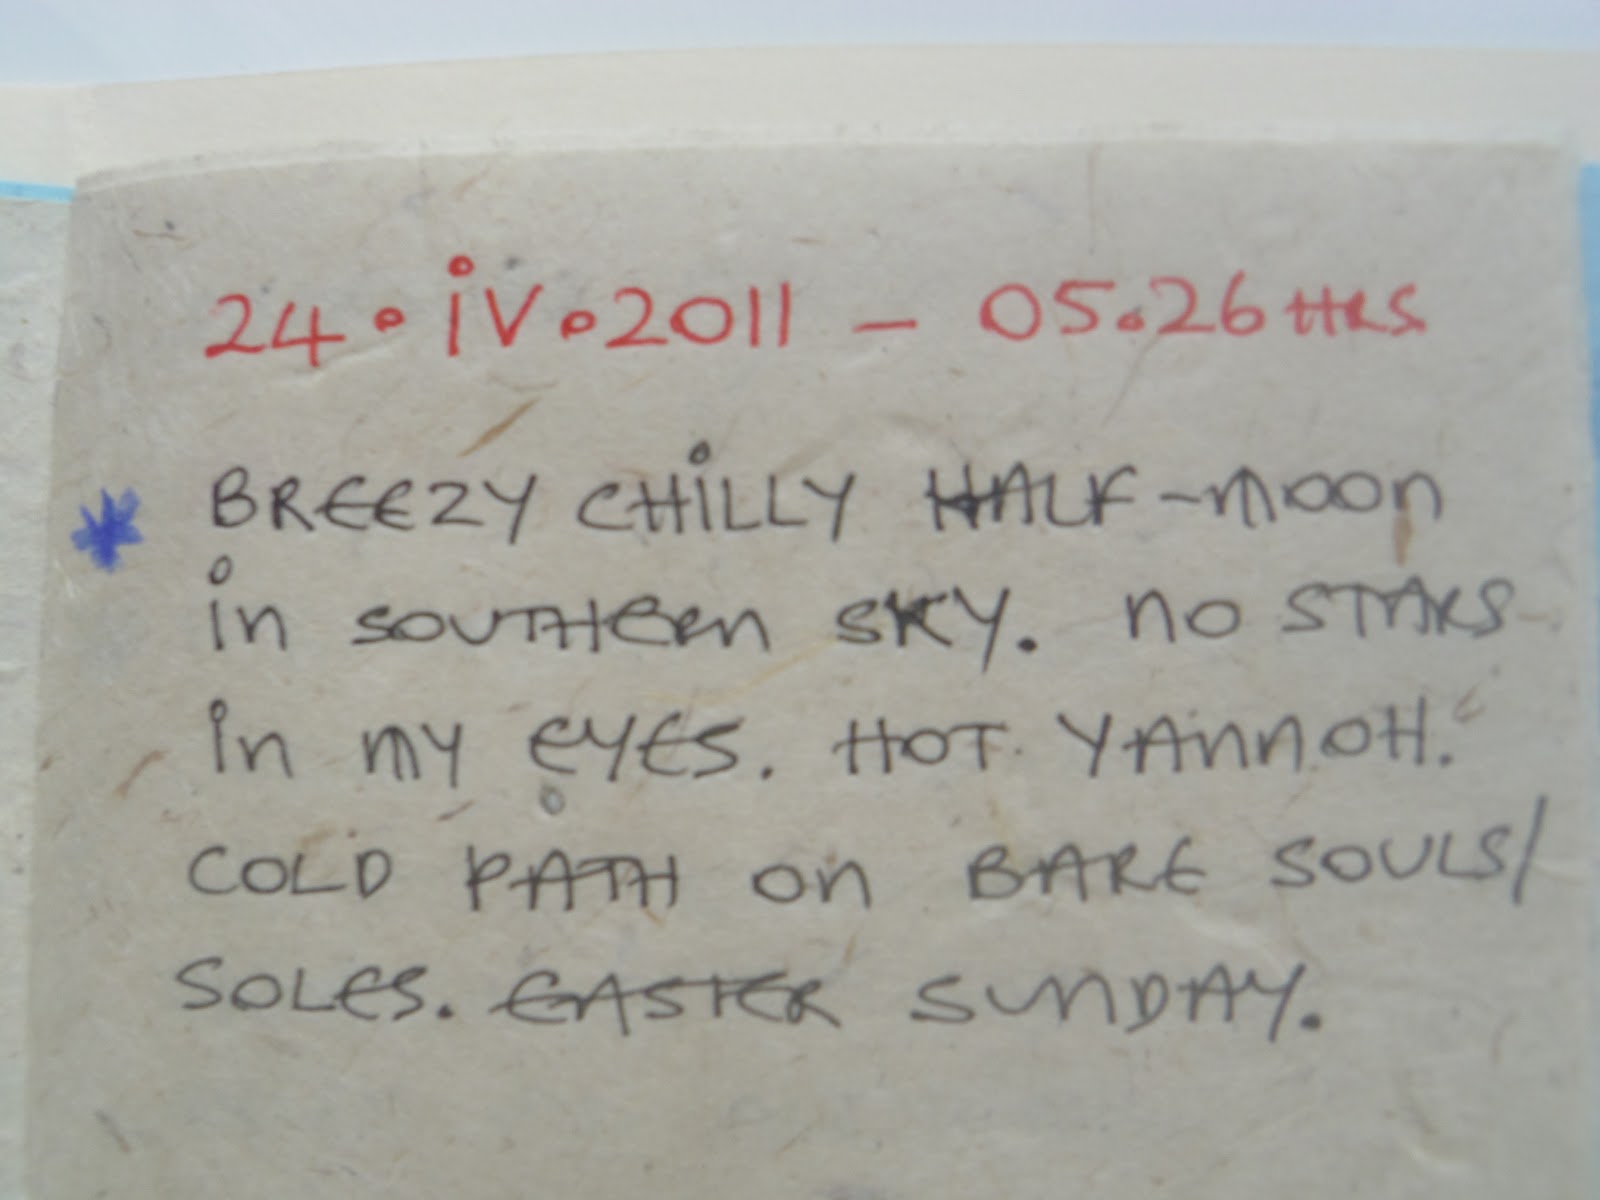 24.iV.2011 – 05.26 HRS.
* BREEZY CHiLLY HALF-MOON
in SOUTHERN SKY. NO STARS
in MY EYES. HOT YANNOH.
COLD PATH ON BARE SOULS/
SOLES. EASTER SUNDAY.